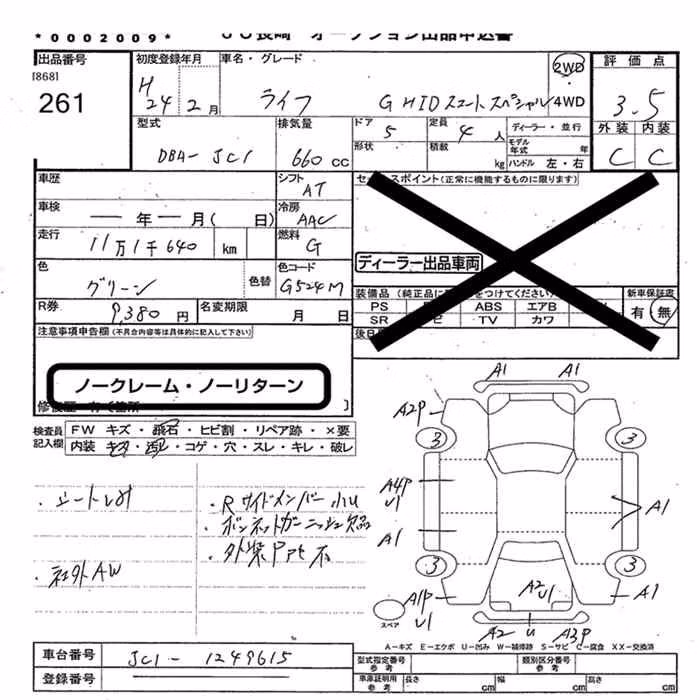 *0002009* JU長崎 オークション出品申込書
出品番号
[868]
261
初度登録年月
H 24年 2月
車名・グレード
ライフ G HIDスマートスペシャル
2WD
4WD
評価点
3.5
外装 内装
C C
型式
DBA-JC1
排気量
660 CC
ドア 5
形状
定員 4人
積数 kg
ディーラー・並行
モデル年式 年
ハンドル 左・右
車歴
シフト AT
車検 ー年ー月( 日)
冷房 AAC
走行 11万1千640 km
燃料 G
色 グリーン
色替
色コード G524M
R券 9,380円
名変期限 月 日
セールスポイント(正常に機能するものに限ります)
ディーラー出品車両
装備品
PS ABS エアB
SR TV カワ
新車保証書
有・無
後日
注意事項申告欄(不具合内容等は具体的に記入して下さい)
ノークレーム・ノーリターン
修復歴 有(箇所 )
検査員記入欄
FW キズ・飛石・ヒビ割・リペア跡・×要
内装 キズ・汚レ・コゲ・穴・スレ・キレ・破レ
・シートヒーター
・社外AW
・Rサイドメンバー小U
・ボンネットガーニッシュ欠品
・外装P
A1 A1
A2P
3 3
A4P
U1
A1
A1
3 3
A1P
U1
A2
U1
A1
A2 U A3P
スペア
A-キズ E-エクボ U-凹み W-補修跡 S-サビ C-腐食 XX-交換済
車台番号 JC1-1249615
登録番号
型式指定番号 参考
類別区分番号 参考
車庫証明用 参考
長さ cm 幅 cm 高さ cm